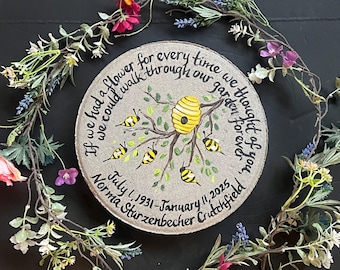 If we had a flower for every time we thought of you,
we could walk through our garden forever
July 1, 1931-January 11, 2025
Norma Sturzenbecher Crutchfield